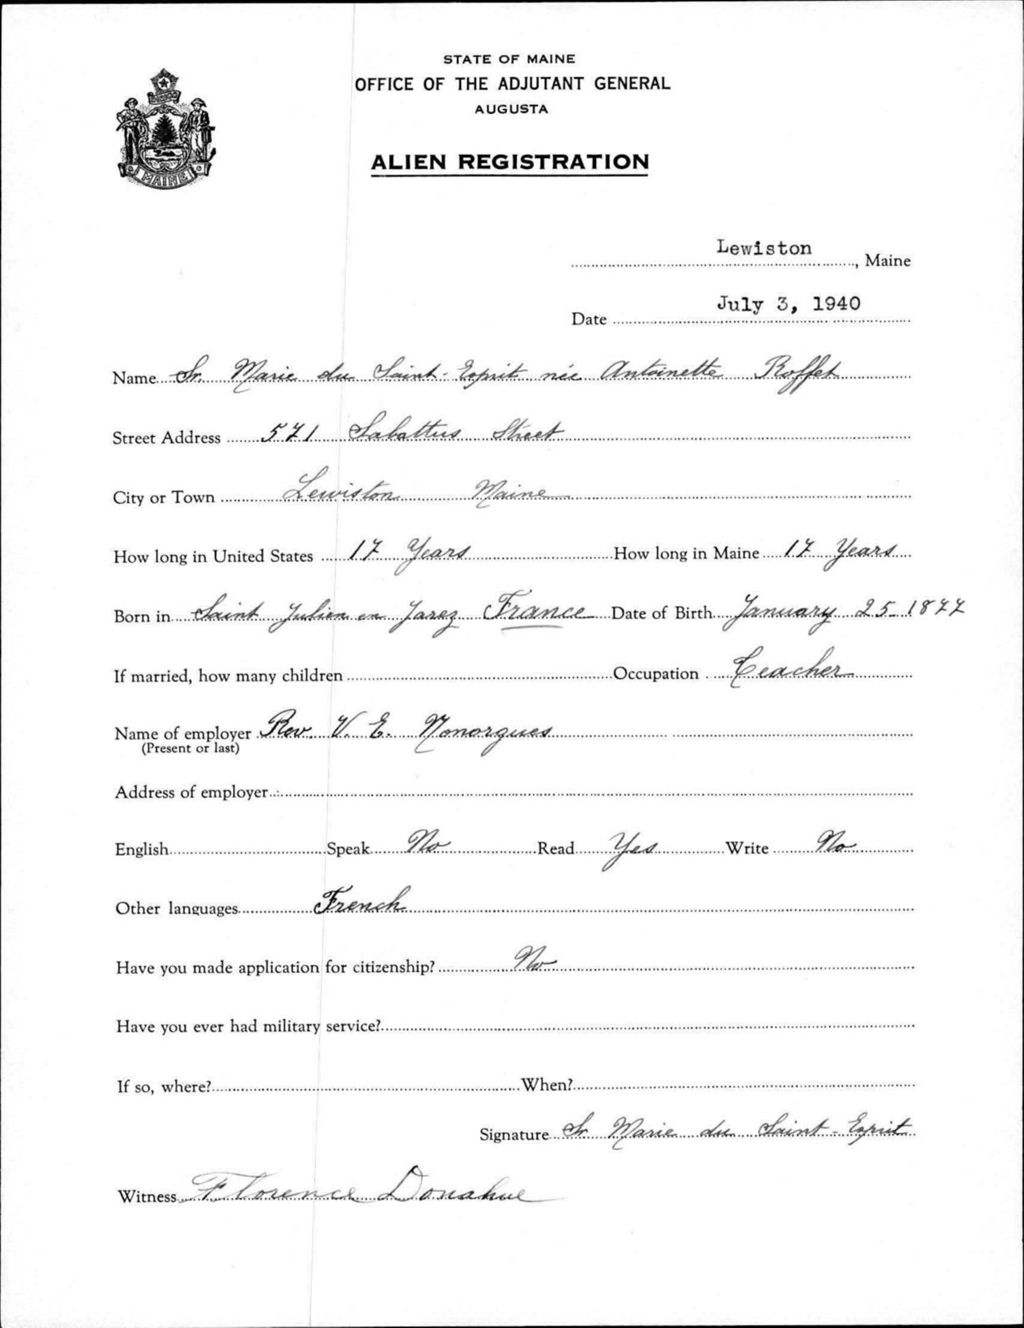 STATE OF MAINE
OFFICE OF THE ADJUTANT GENERAL
AUGUSTA
MAINE
ALIEN REGISTRATION
Lewiston, Maine
Date July 3, 1940
Name Sr. Marie du Saint-Esprit née Antoinette Roffet
Street Address 571 Sabattus Street
City or Town Lewiston Maine
How long in United States 17 Years How long in Maine 17 Years
Born in Saint Julien en Jarez France Date of Birth January 25 1877
If married, how many children Occupation Teacher
Name of employer Rev. V. E. Nonorgues
(Present or last)
Address of employer
English Speak No Read Yes Write No
Other languages French
Have you made application for citizenship? No
Have you ever had military service?
If so, where? When?
Signature Sr Marie du Saint-Esprit
Witness Florence Donahue